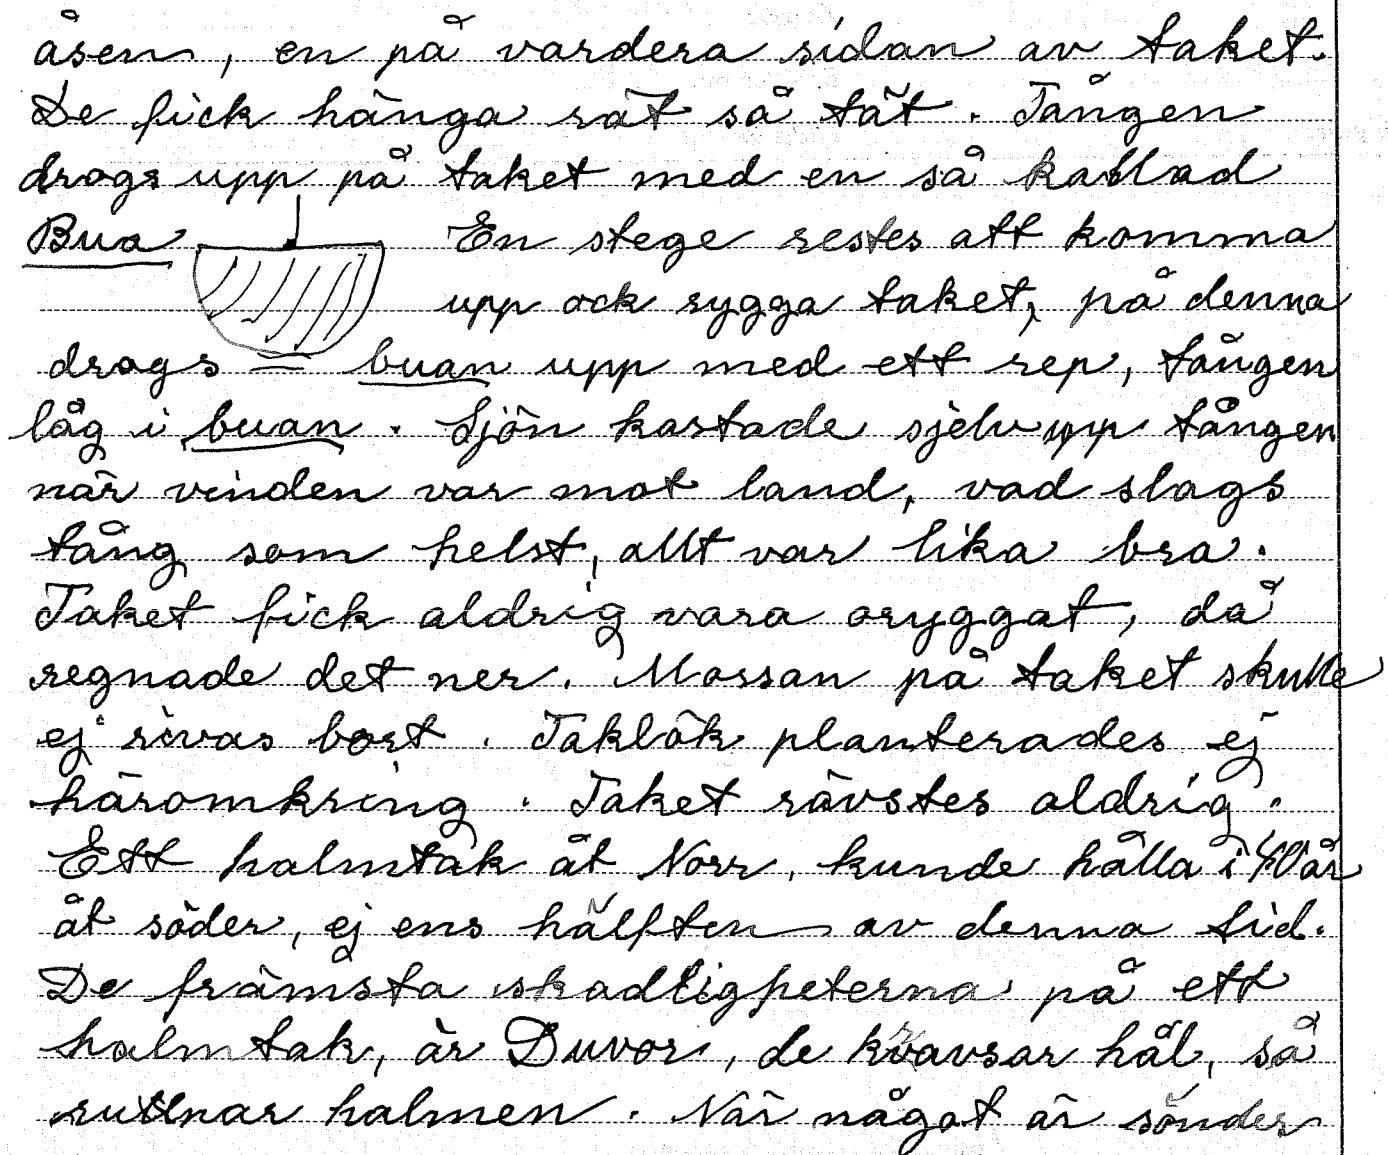 åsen, en på vardera sidan av taket.
De fick hänga rät så tät. Tången
drogs upp på taket med en så kallad
Bua En stege restes att komma
upp ock rygga taket, på denna
drogs buan upp med ett rep, tången
låg i buan. Sjön kastade sjelv upp tången
när vinden var mot land, vad slags
tång som helst, allt var lika bra.
Taket fick aldrig vara oryggat, då
regnade det ner. Mossan på taket skulle
ej rivas bort. Taklök planterades ej
häromkring. Taket rävstes aldrig.
Ett halmtak åt Norr, kunde hålla i 40 år
åt söder, ej ens hälften av denna tid.
De främsta skadligheterna på ett
halmtak, är Duvor, de hål, så
ruttnar halmen. När något är sönder